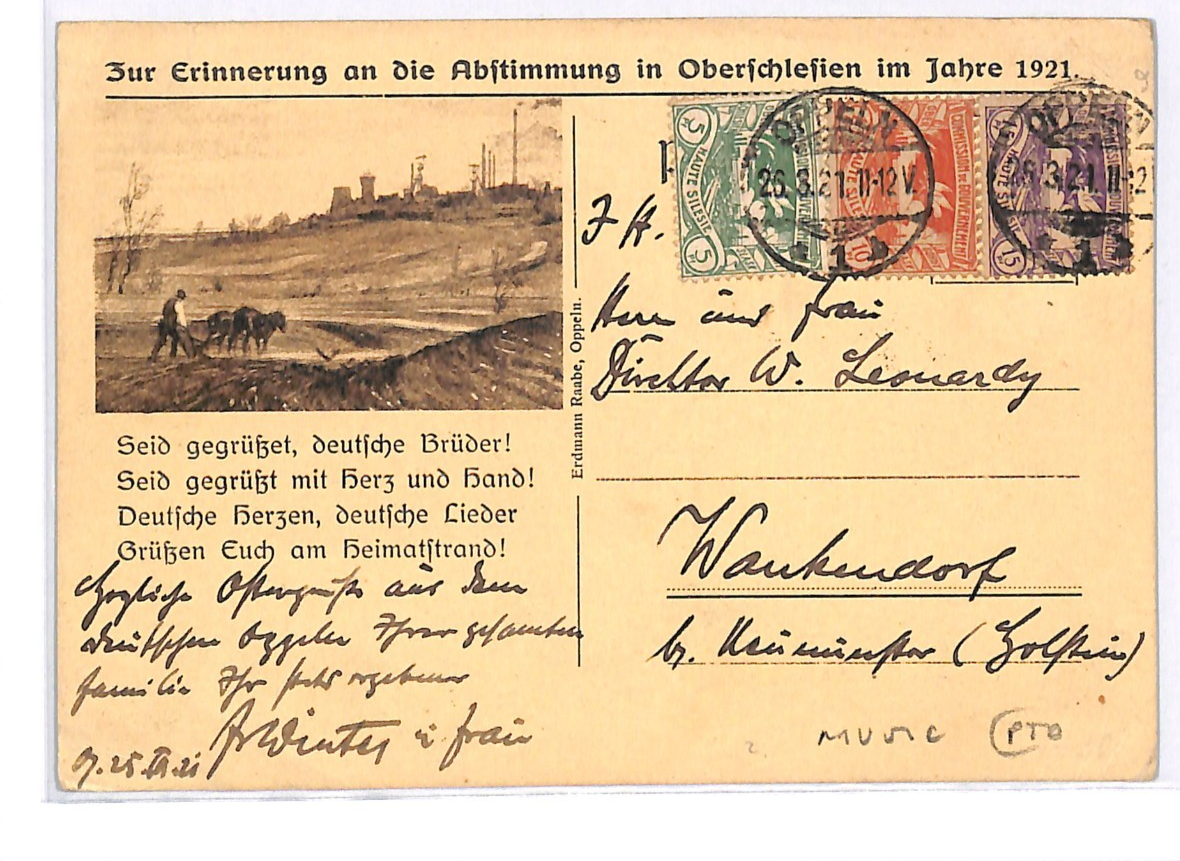 Zur Erinnerung an die Abstimmung in Oberschlesien im Jahre 1921.
5 HAUTE SILESIE 5
COMMISSION DE GOUVERNEMENT HAUTE SILESIE 10
15 HAUTE SILESIE 15
OPPELN
26.3.21.11-12V.
1
OPPELN
26.3.21.11-12
1
Herrn und Frau
Direktor W. Leonardy
Wankendorf
b. Neumünster (Holstein)
Erdmann Raabe, Oppeln.
Seid gegrüßet, deutsche Brüder!
Seid gegrüßt mit Herz und Hand!
Deutsche Herzen, deutsche Lieder
Grüßen Euch am Heimatstrand!
Herzliche Ostergrüße aus dem
deutschen Oppeln Ihrer gesamten
Familie Ihr stets ergebener
Winter u Frau
25.III.21
MUSIC PTO